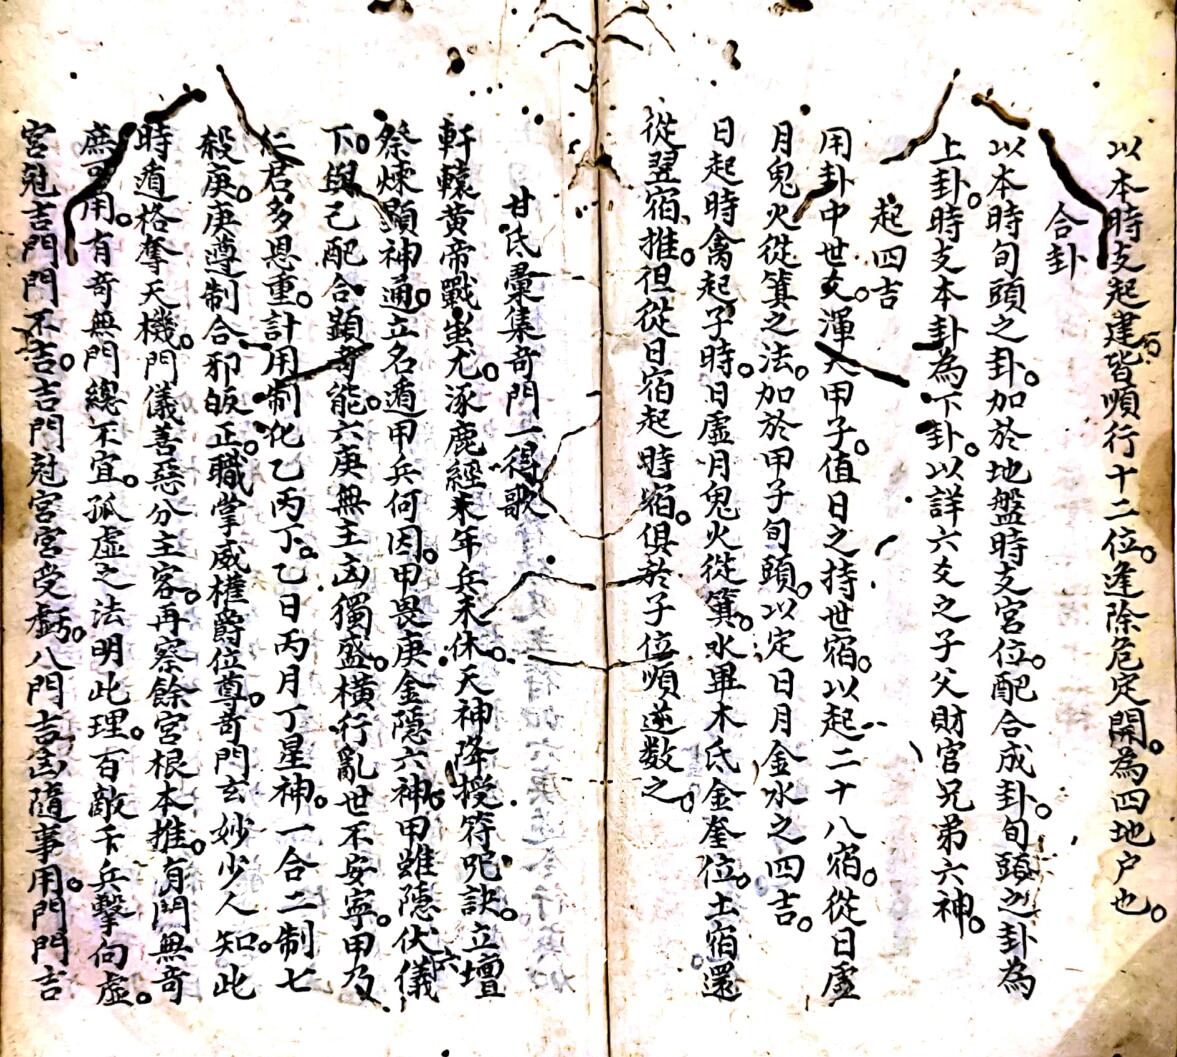 以本時支起建皆順行十二位。逢除危定開。為四地户也。
合卦
以本時旬頭之卦。加於地盤時支宮位。配合成卦。旬頭之卦為
上卦。時支本卦為下卦。以詳六爻之子父財官兄弟六神。
起四吉
用卦中世爻。渾天甲子。值日之持世宿。以起二十八宿。從日虛
月鬼火從箕之法。加於甲子旬頭。以定日月金水之四吉。
日起時禽起子時。日虛月鬼火從箕。水畢木氐金奎位。土宿還
從翌宿推。但從日宿起時宿。俱於子位順逆数之。
甘氏彙集奇門一得歌
軒轅黄帝戰蚩尤。涿鹿經来年兵未休。天神降授符呪訣。立壇
祭煉顯神通。立名遁甲兵何因。甲畏庚金隱六神。甲雖隱伏六儀
下。與己配合顕奇能。六庚無主凶獨盛。横行亂世不安寧。甲乃
仁君多恩重。計用制化乙丙丁。乙日丙月丁星神。一合二制七
殺庚。庚遵制合邪皈正。職掌威權爵位尊。奇門玄妙少人知。此
時遁格奪天機。門儀善惡分主客。再察餘宮根本推。有門無奇
庶可用。有奇無門總不宜。孤虛之法明此理。百敵千兵擊向虛。
宮尅吉門門不吉。吉門尅宮宮受虧。八門吉凶隨事用。門門吉